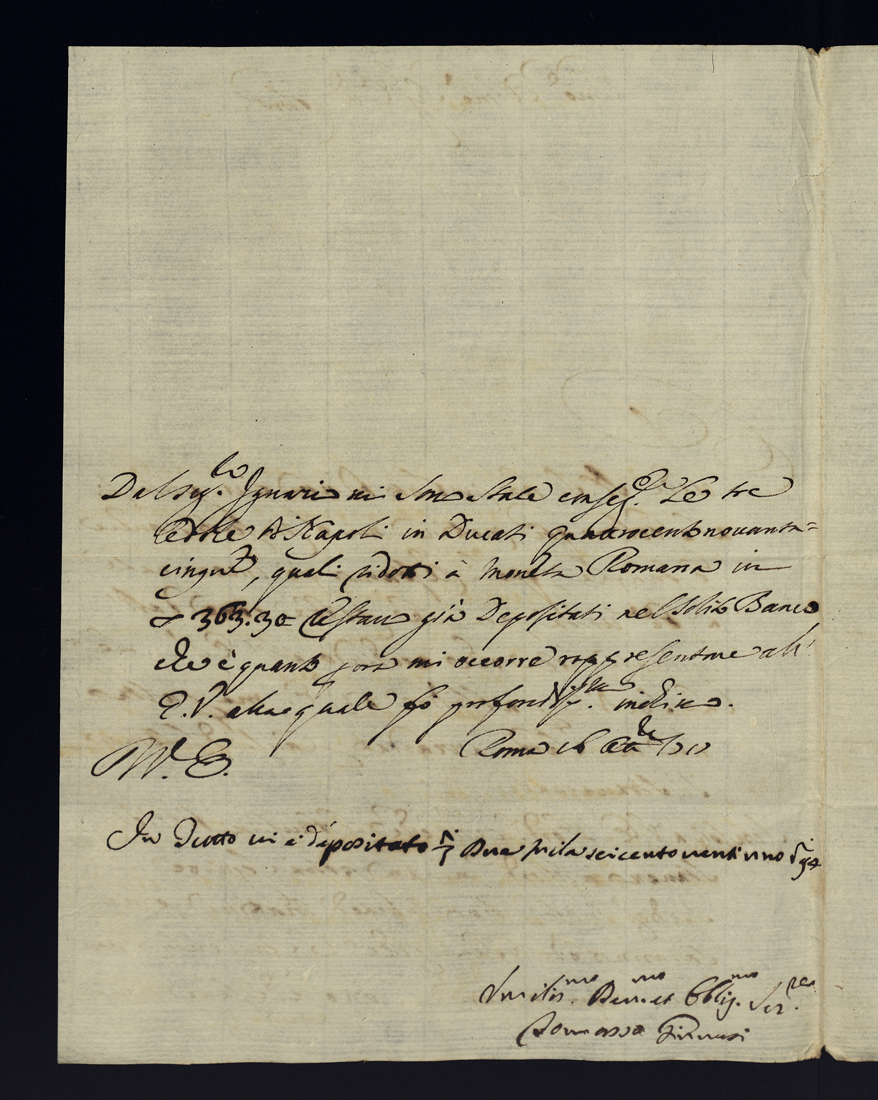 Dal Sig.ro Ignazio mi sono state conseg.te Le tre
Cedole di Napoli in Ducati quatrocentonovanta=
cinque, quali ridotti à moneta Romana in
363:30 restano già Depositati nel solito Banco
che è quanto per ora mi occorre rappresentare all'
E. V. alla quale fò profondiss.mo inchino.
Roma 16
In Tutto vi è depositato Due mila seicento venti uno
Umiliss.mo Dev.mo et Obblig.mo Ser.re
Tommaso